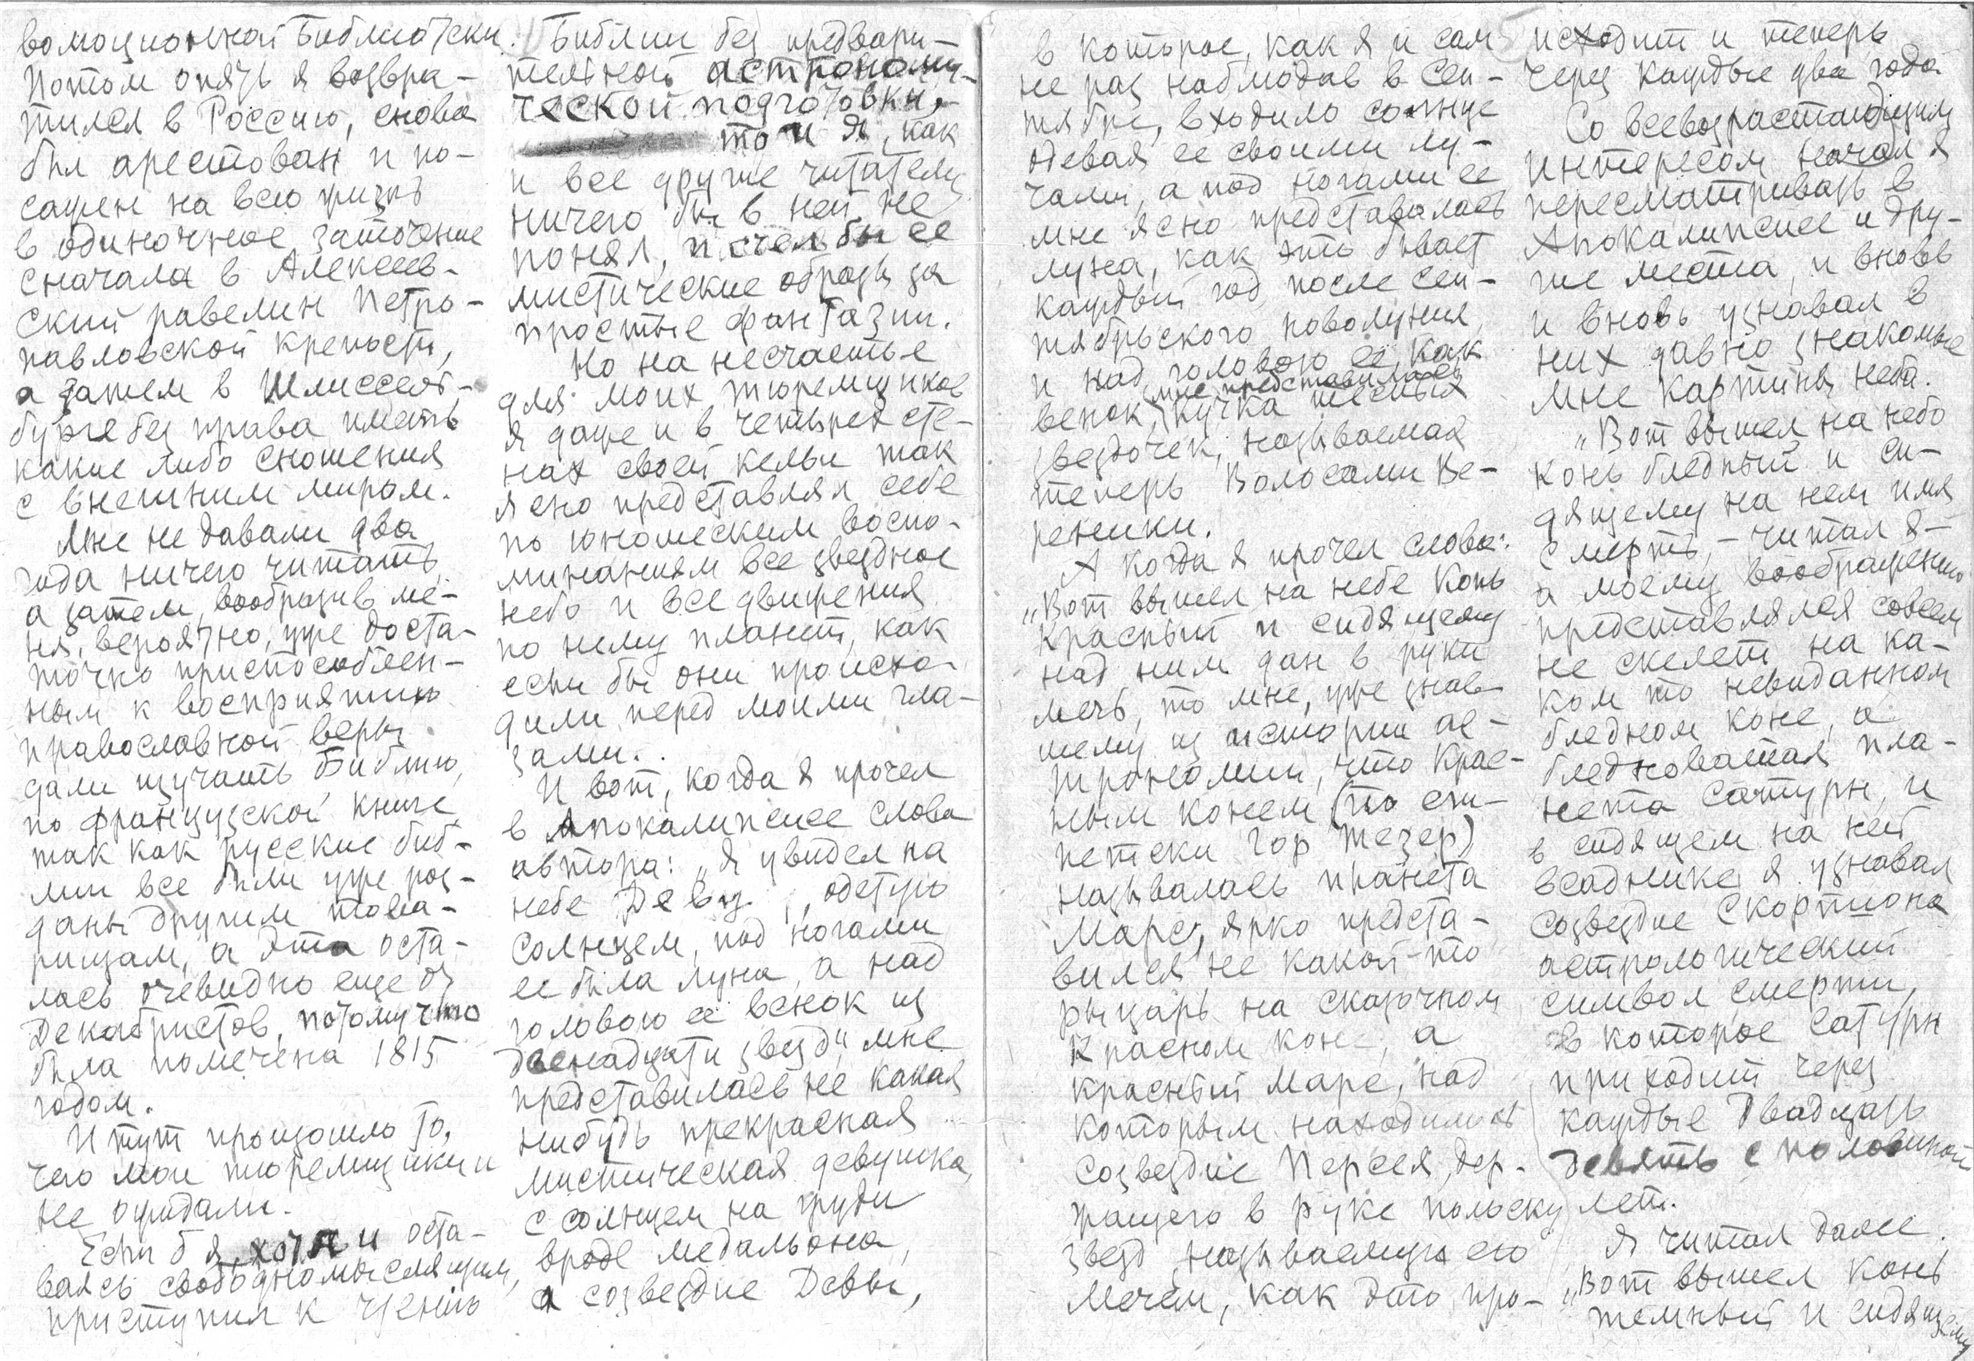 волюционной Библиотеки.
Потом опять я возвра-
тился в Россию, снова
был арестован и по-
сажен на всю жизнь
в одиночное заточение
сначала в Алексеев-
ский равелин Петро-
павловской крепости,
а затем в Шлиссель-
бурге без права иметь
какие либо сношения
с внешним миром.
Мне не давали два
года ничего читать,
а затем, вообразив ме-
ня, вероятно, уже доста-
точно приспособлен-
ным к восприятию
православной веры
дали изучать Библию,
по французской книге,
так как русские биб-
лии все были уже роз-
даны другим това-
рищам, а эта оста-
лась очевидно еще от
Декабристов, потому что
была помечена 1815
годом.
И тут произошло то,
чего мои тюремщики и
не ожидали.
Если б я, хотя и оста-
ваясь свободномыслящим,
приступил к чтению
Библии без предвари-
тельной астрономи-
ческой подготовки,
то и я, как
и все другие читатели
ничего бы в ней не
понял, и счел бы ее
мистические образы за
простые фантазии.
Но на несчастье
для моих тюремщиков
я даже и в четырех сте-
нах своей кельи так
ясно представлял себе
по юношеским воспо-
минаниям все звездное
небо и все движения
по нему планет, как
если бы они происхо-
дили перед моими гла-
зами.
И вот, когда я прочел
в Апокалипсисе слова
автора: „Я увидел на
небе Деву, одетую
солнцем, под ногами
ее была луна, а над
головою ее венок из
двенадцати звезд", мне
представилась не какая
нибудь прекрасная
мистическая девушка,
с солнцем на груди
вроде медальона,
а созвездие Девы,
в которое, как я и сам
не раз наблюдав в сен-
тябре, входило солнце
одевая ее своими лу-
чами, а под ногами ее
мне ясно представлялась
луна, как это бывает
каждый год после сен-
тябрьского новолуния,
и над головою ее, как
венок, (мне представилась
кучка тесных
звездочек, называемая
теперь Волосами Ве-
реники.
А когда я прочел слова:
„Вот вышел на небе Конь
красный и сидящему
над ним дан в руки
мечь, то мне, уже знав-
шему из истории ас-
трономии, что Крас-
ным конем (по еги-
петски Гор Тезер)
называлась планета
Марс, ярко предста-
вился не какой-то
рыцарь на сказочном
красном коне, а
красный Марс, над
которым находилось
созвездие Персея, дер-
жащего в руке полоску
звезд, называемую его
Мечем, как это про-
исходит и теперь
через каждые два года
Со всевозрастающим
интересом начал я
пересматривать в
Апокалипсисе и дру-
гие места, и вновь
и вновь узнавал в
них давно знакомые
мне картины неба.
„Вот вышел на небо
конь бледный и си-
дящему на нем имя
смерть, – читал я –
а моему воображению
представлялся совсем
не скелет на ка-
ком то невиданном
бледном коне, а
бледноватая пла-
нета Сатурн, и
в сидящем на ней
всаднике я узнавал
созвездие Скорпиона
астрологический
символ смерти,
в которое Сатурн
приходит через
каждые двадцать
девять с половиной
лет.
Я читал далее.
„Вот вышел конь
темный и сидящему